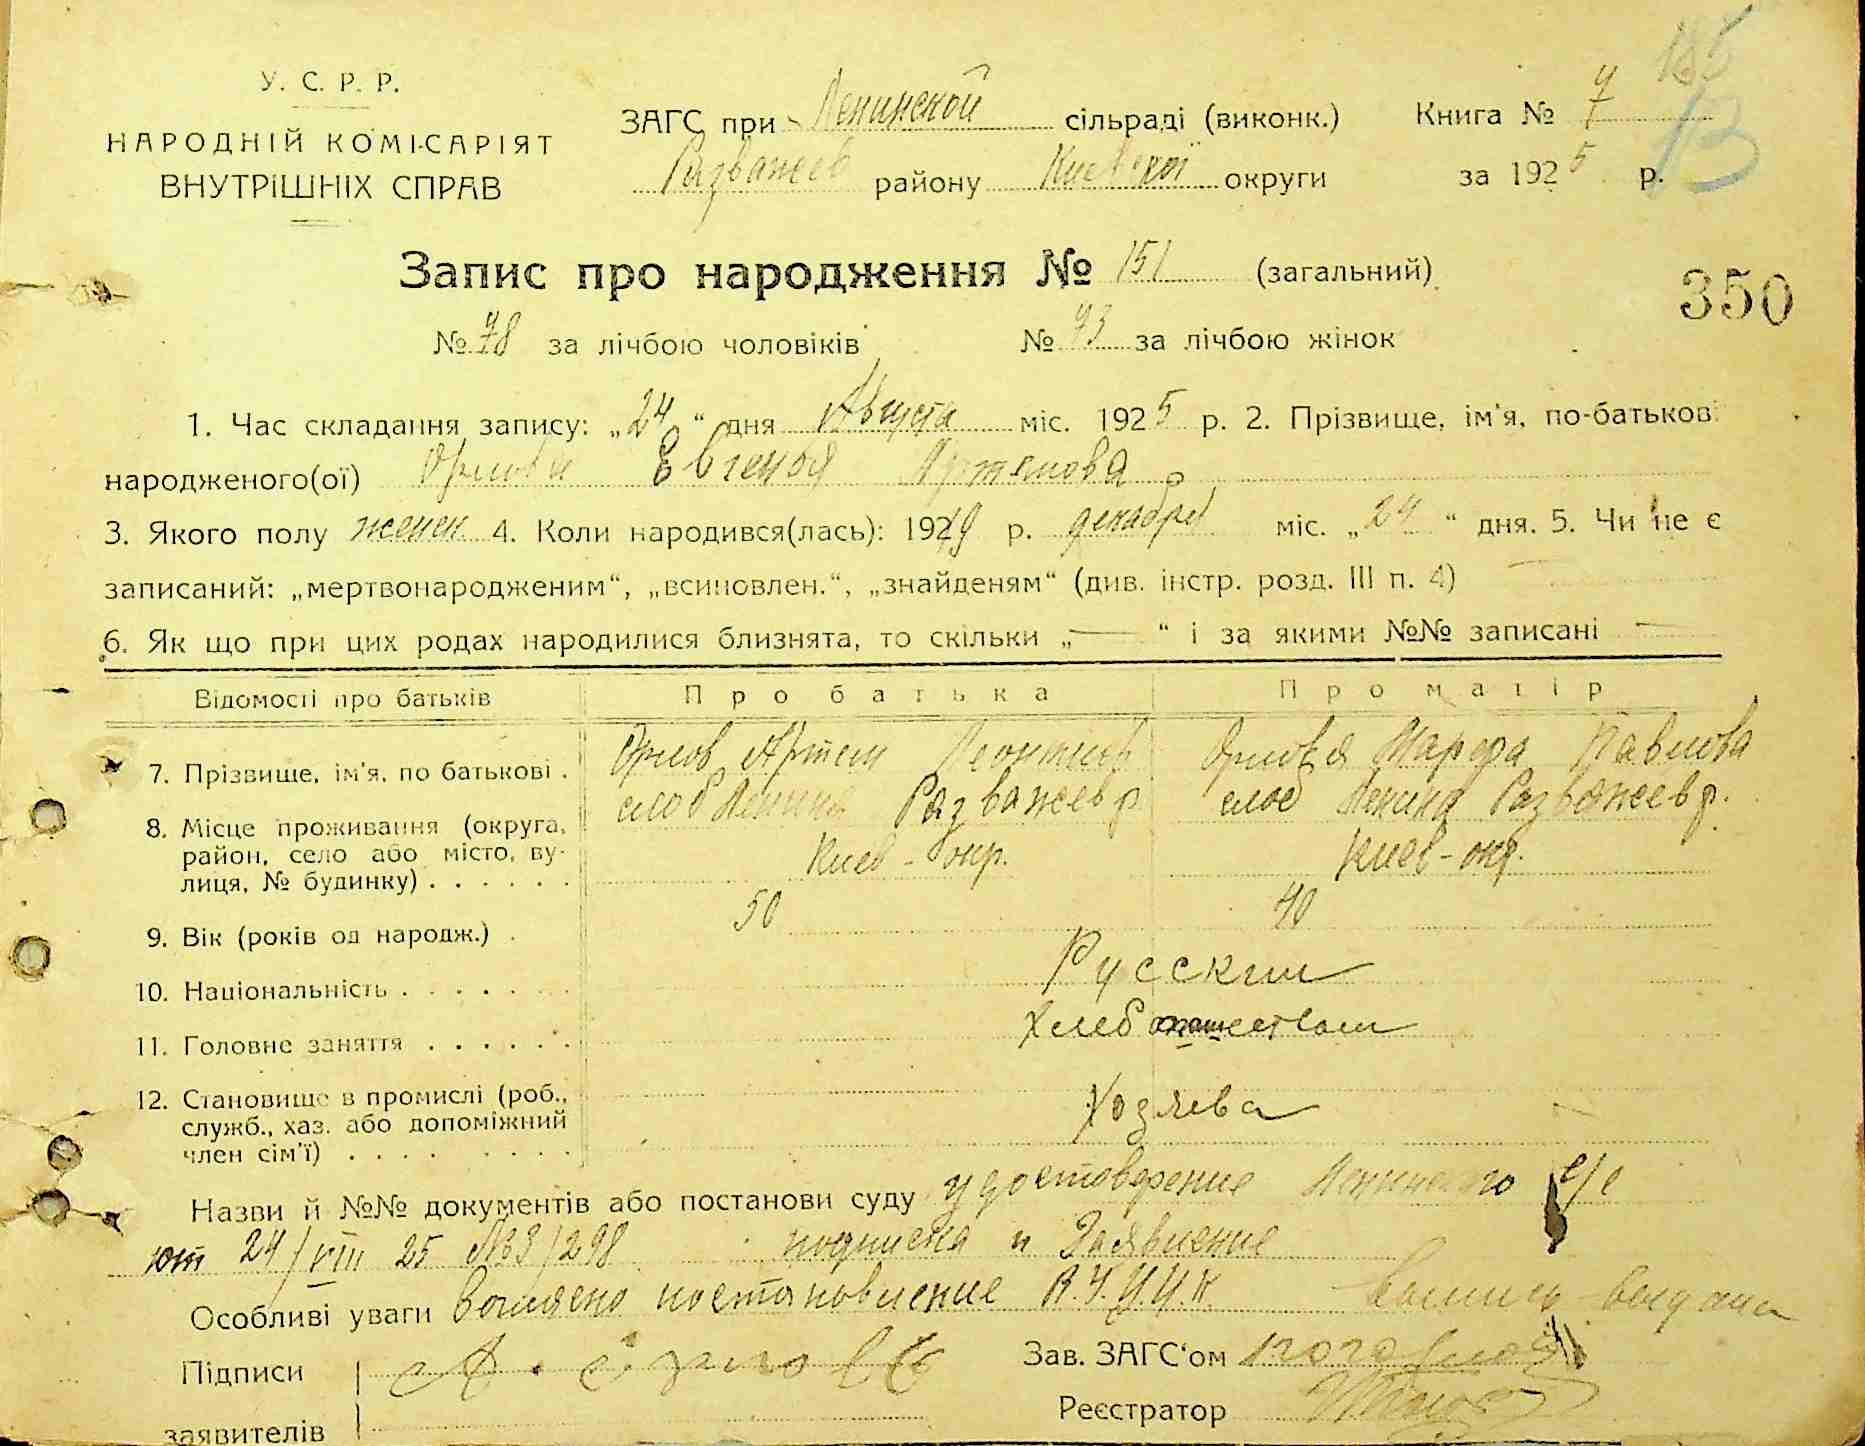 185
13
У. С. Р. Р.
НАРОДНІЙ КОМІСАРІЯТ
ВНУТРІШНІХ СПРАВ
ЗАГС при Ленинской сільраді (виконк.) Книга № 7
Розважев району Киевской округи за 1925 р.
Запис про народження № 151 (загальний)
350
№ 78 за лічбою чоловіків № 73 за лічбою жінок
1. Час складання запису: „24“ дня Августа міс. 1925 р. 2. Прізвище, ім'я, по-батькові
народженого(ої) Орлова Евгения Артемова
3. Якого полу женск 4. Коли народився(лась): 1919 р. декабря міс. „24“ дня. 5. Чи не є
записаний: „мертвонародженим“, „всиновлен.“, „знайденям“ (див. інстр. розд. III п. 4)
6. Як що при цих родах народилися близнята, то скільки „—“ і за якими №№ записані —
Відомості про батьків Про батька Про матір
7. Прізвище, ім'я, по батькові . Орлов Артем Леонтиев Орлова Марфа Павлова
8. Місце проживання (округа, слоб Ленина Розважев р. слоб Ленина Розважев р.
район, село або місто, ву- Киев-окр. Киев-окр.
лиця, № будинку) . . . . . .
9. Вік (років од народж.) . 50 40
10. Національність . . . . . . . Русские
11. Головне заняття . . . . . . Хлебопашеством
12. Становище в промислі (роб., Хозяева
служб., хаз. або допоміжний
член сім'ї) . . . . . . . .
Назви й №№ документів або постанови суду удостоверение Ленинского с/с
от 24/VIII 25 №3/298 подписка и Заявление
Особливі уваги Согласно постановление В.У.Ц.И.К. выдана
Підписи А. Орлов Зав. ЗАГС'ом
заявителів Реєстратор